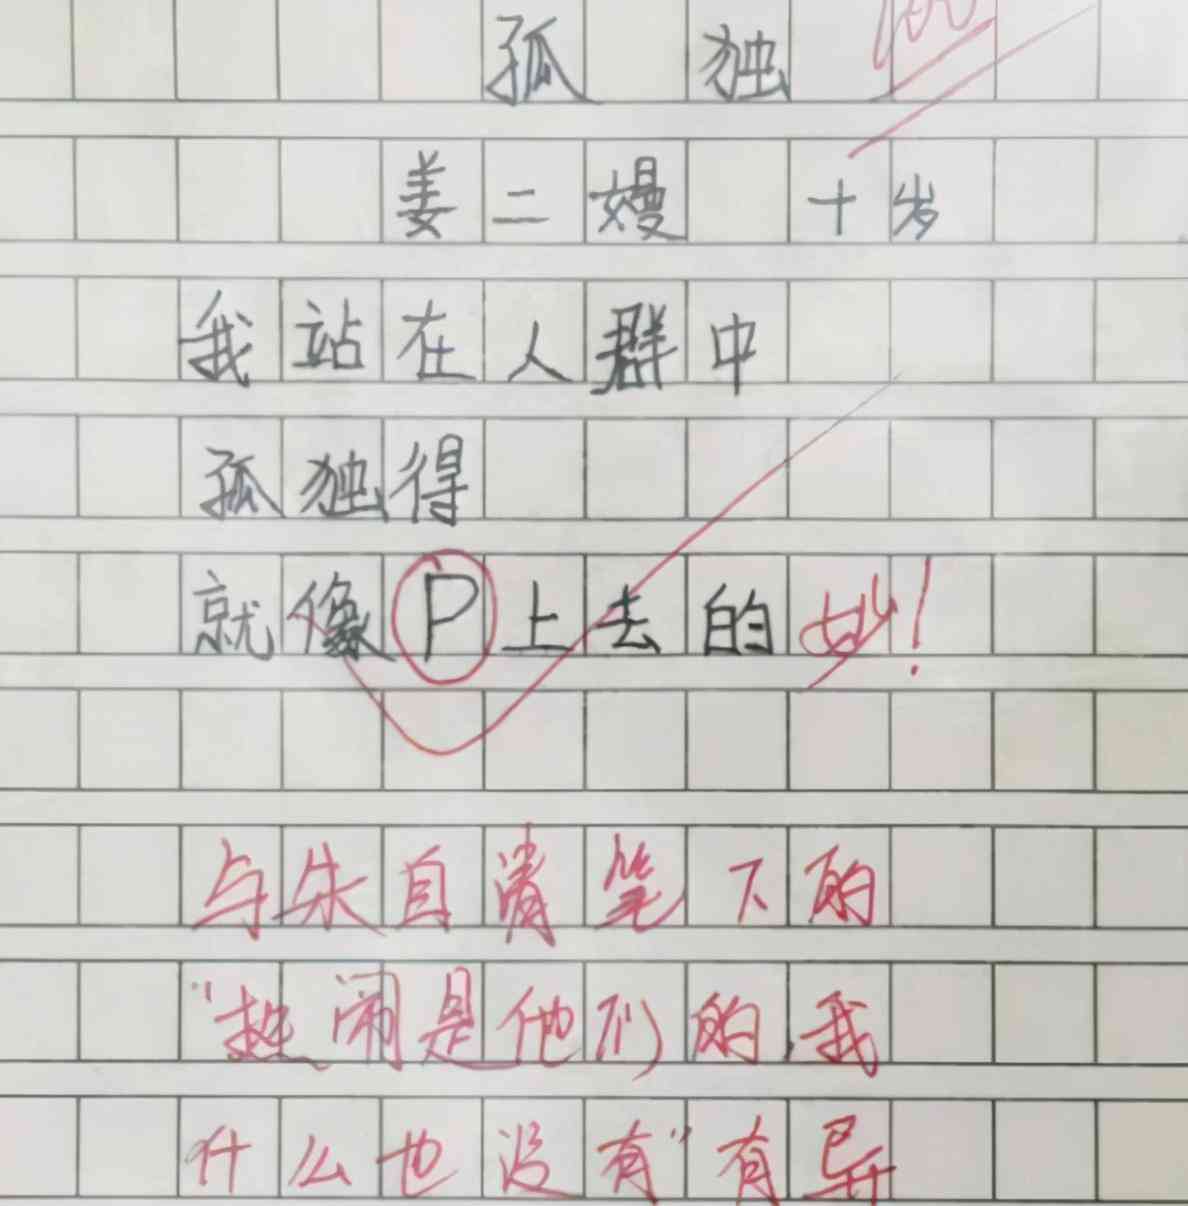 孤独 100
姜二嫚 十岁
我站在人群中
孤独得
就像P上去的 妙！
与朱自清笔下的
“热闹是他们的，我
什么也没有”有异